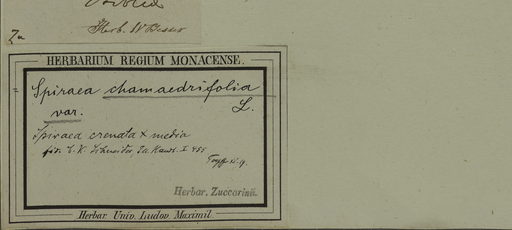 Herb. W. Besser
Zu
HERBARIUM REGIUM MONACENSE.
= Spiraea chamaedrifolia
L.
var.
Spiraea crenata x media
C. K. Schneider I 455
Herbar. Zuccarinii.
Herbar. Univ. Ludov. Maximil.